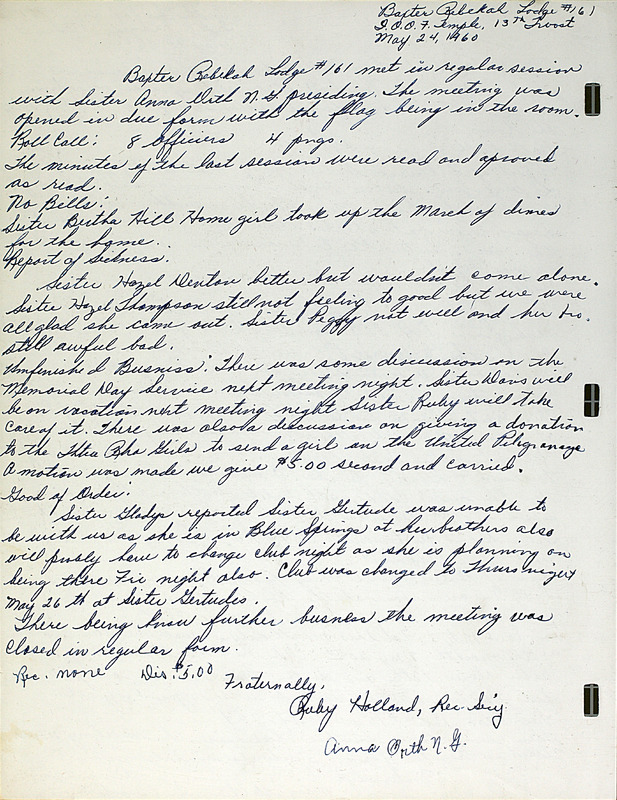 Baxter Rebekah Lodge #161
I.O.O.F. Temple, 13th Troost
May 24, 1960
Baxter Rebekah Lodge #161 met in regular session
with Sister Anna Orth N.G. presiding. The meeting was
opened in due form with the flag being in the room.
Roll Call: 8 officers 4 pngs.
The minutes of the last session were read and aproved
as read.
No Bills:
Sister Bertha Hill Home girl took up the March of dimes
for the home.
Report of Sickness.
Sister Hazel Denton better but wouldn't come alone.
Sister Hazel Thompson still not feeling to good but we were
all glad she came out. Sister Peggy not well and her bro.
still awful bad.
Unfinished Business: There was some discussion on the
Memorial Day Service next meeting night. Sister Davis will
be on vacation next meeting night Sister Ruby will take
care of it. There was also a discussion on giving a donation
to the Theta Rho Girls to send a girl on the United
A motion was made we give $5.00 second and carried.
Good of Order:
Sister Gladys reported Sister Gertude was unable to
be with us as she is in Blue Springs at her brothers also
will have to change club night as she is planning on
being there Fri night also. Club was changed to Thurs
May 26 th at Sister Gertudes.
There being know further busness the meeting was
closed in regular form.
Rec. none Dis. $5.00
Fraternally,
Ruby Holland, Rec. Sec'y
Anna Orth N.G.